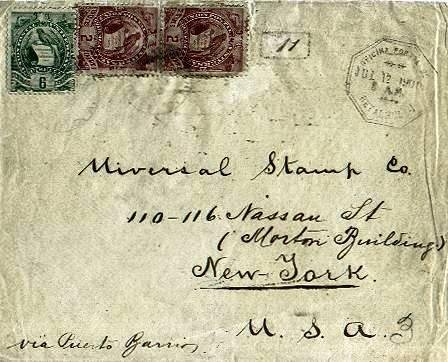 6
2
2
11
OFICINA POSTAL
JUL 12 1901
Universal Stamp Co.
110-116. Nassau St
(Morton Building)
New-York.
U. S. A.
via Puerto Barrios